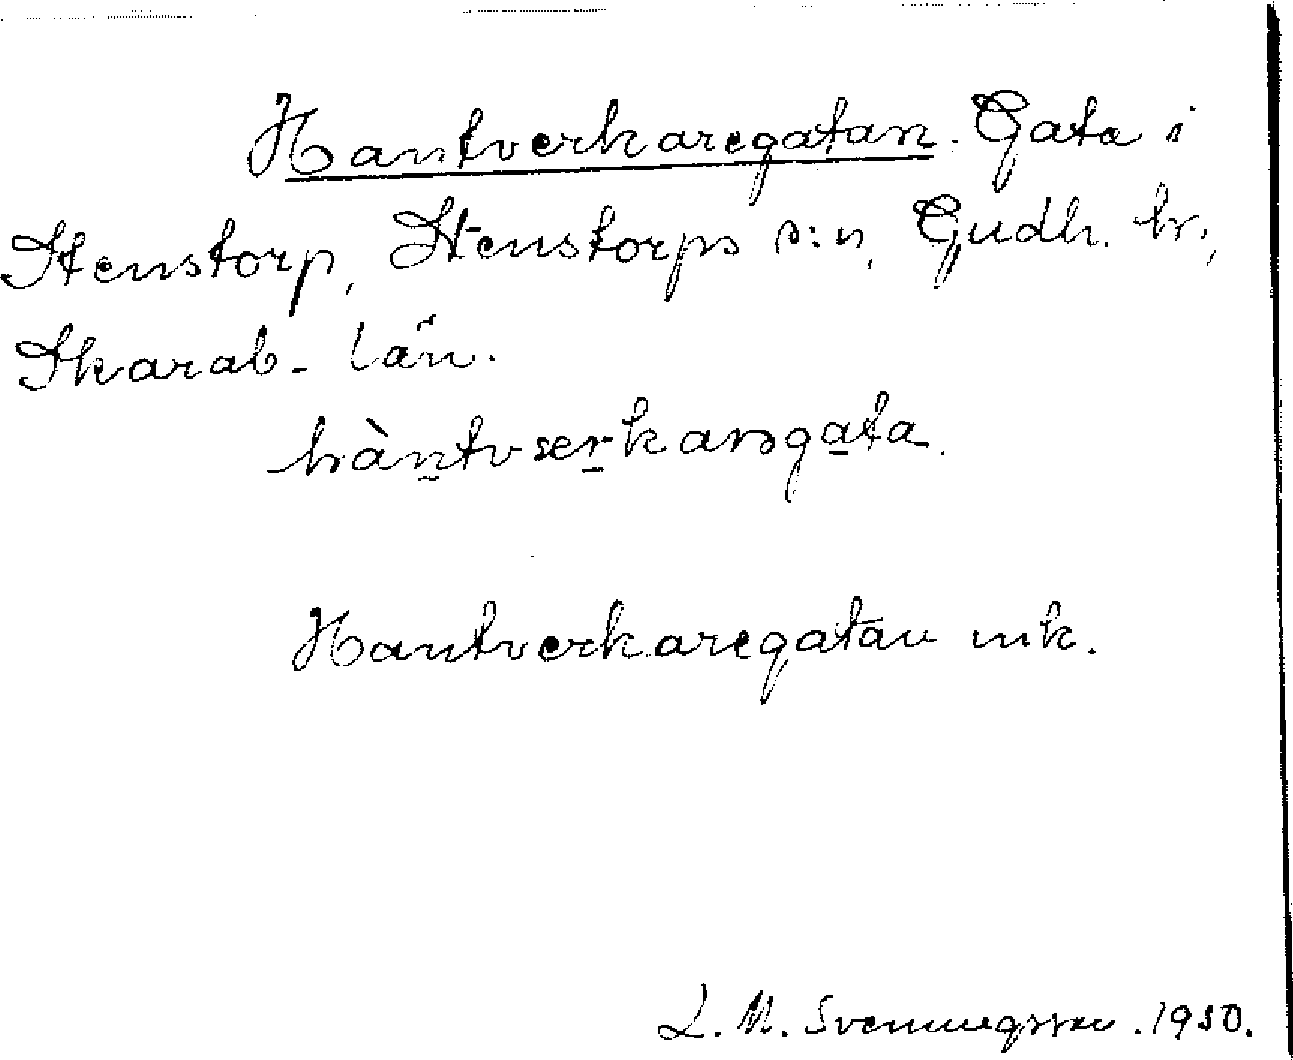 Hantverkaregatan. Gata i
Stenstorp, Stenstorps s:n, Gudh. hr.,
Skarab. län.
hàntværkarsgata.
Hantverkaregatan mk.
L. M. Svenningsson. 1950.